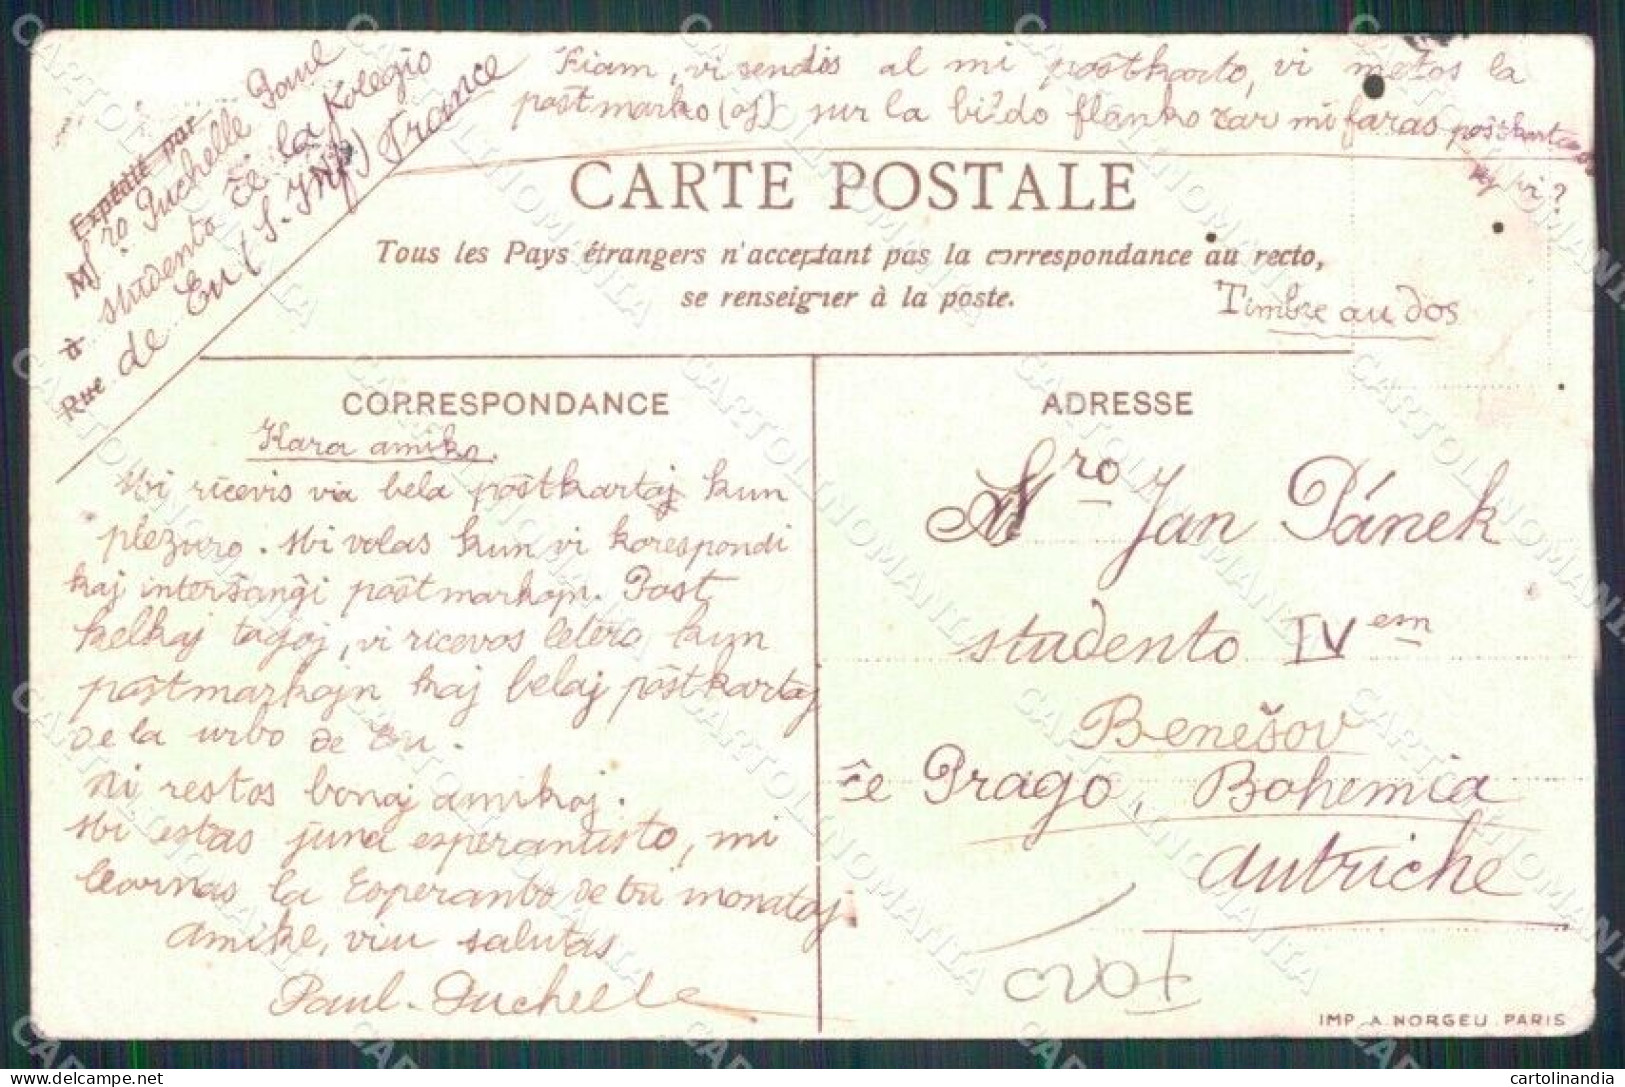 Fiam, vi sendos al mi poŝtkarto, vi metos la
poŝtmarko(oj) sur la bildo flanko ĉar mi faras
vi?
Expédié par
Sro. Duchelle Paul
studento ĉe la Kolegio
à
Rue de Eu (S. Inf) France
CARTE POSTALE
Tous les Pays étrangers n'acceptant pas la correspondance au recto,
se renseigner à la poste.
Timbre au dos
CORRESPONDANCE
Kara amiko.
Mi ricevis via bela poŝtkartaj kun
plezuro. Mi volas kun vi korespondi
kaj interŝanĝi poŝtmarkojn. Post
kelkaj tagoj, vi ricevos letero kun
poŝtmarkojn kaj belaj poŝtkartaj
de la urbo de Eu.
Ni restos bonaj amikoj.
Mi estas juna esperantisto, mi
learnas la Esperanto de tri monatoj
Amike, vin salutas
Paul. Duchelle
ADRESSE
Sro Jan Pánek
studento IVem
Benešov
ĉe Prago, Bohemia
Autriche
IMP. A. NORGEU. PARIS
CARTOLINOMANIA
cartolinandia